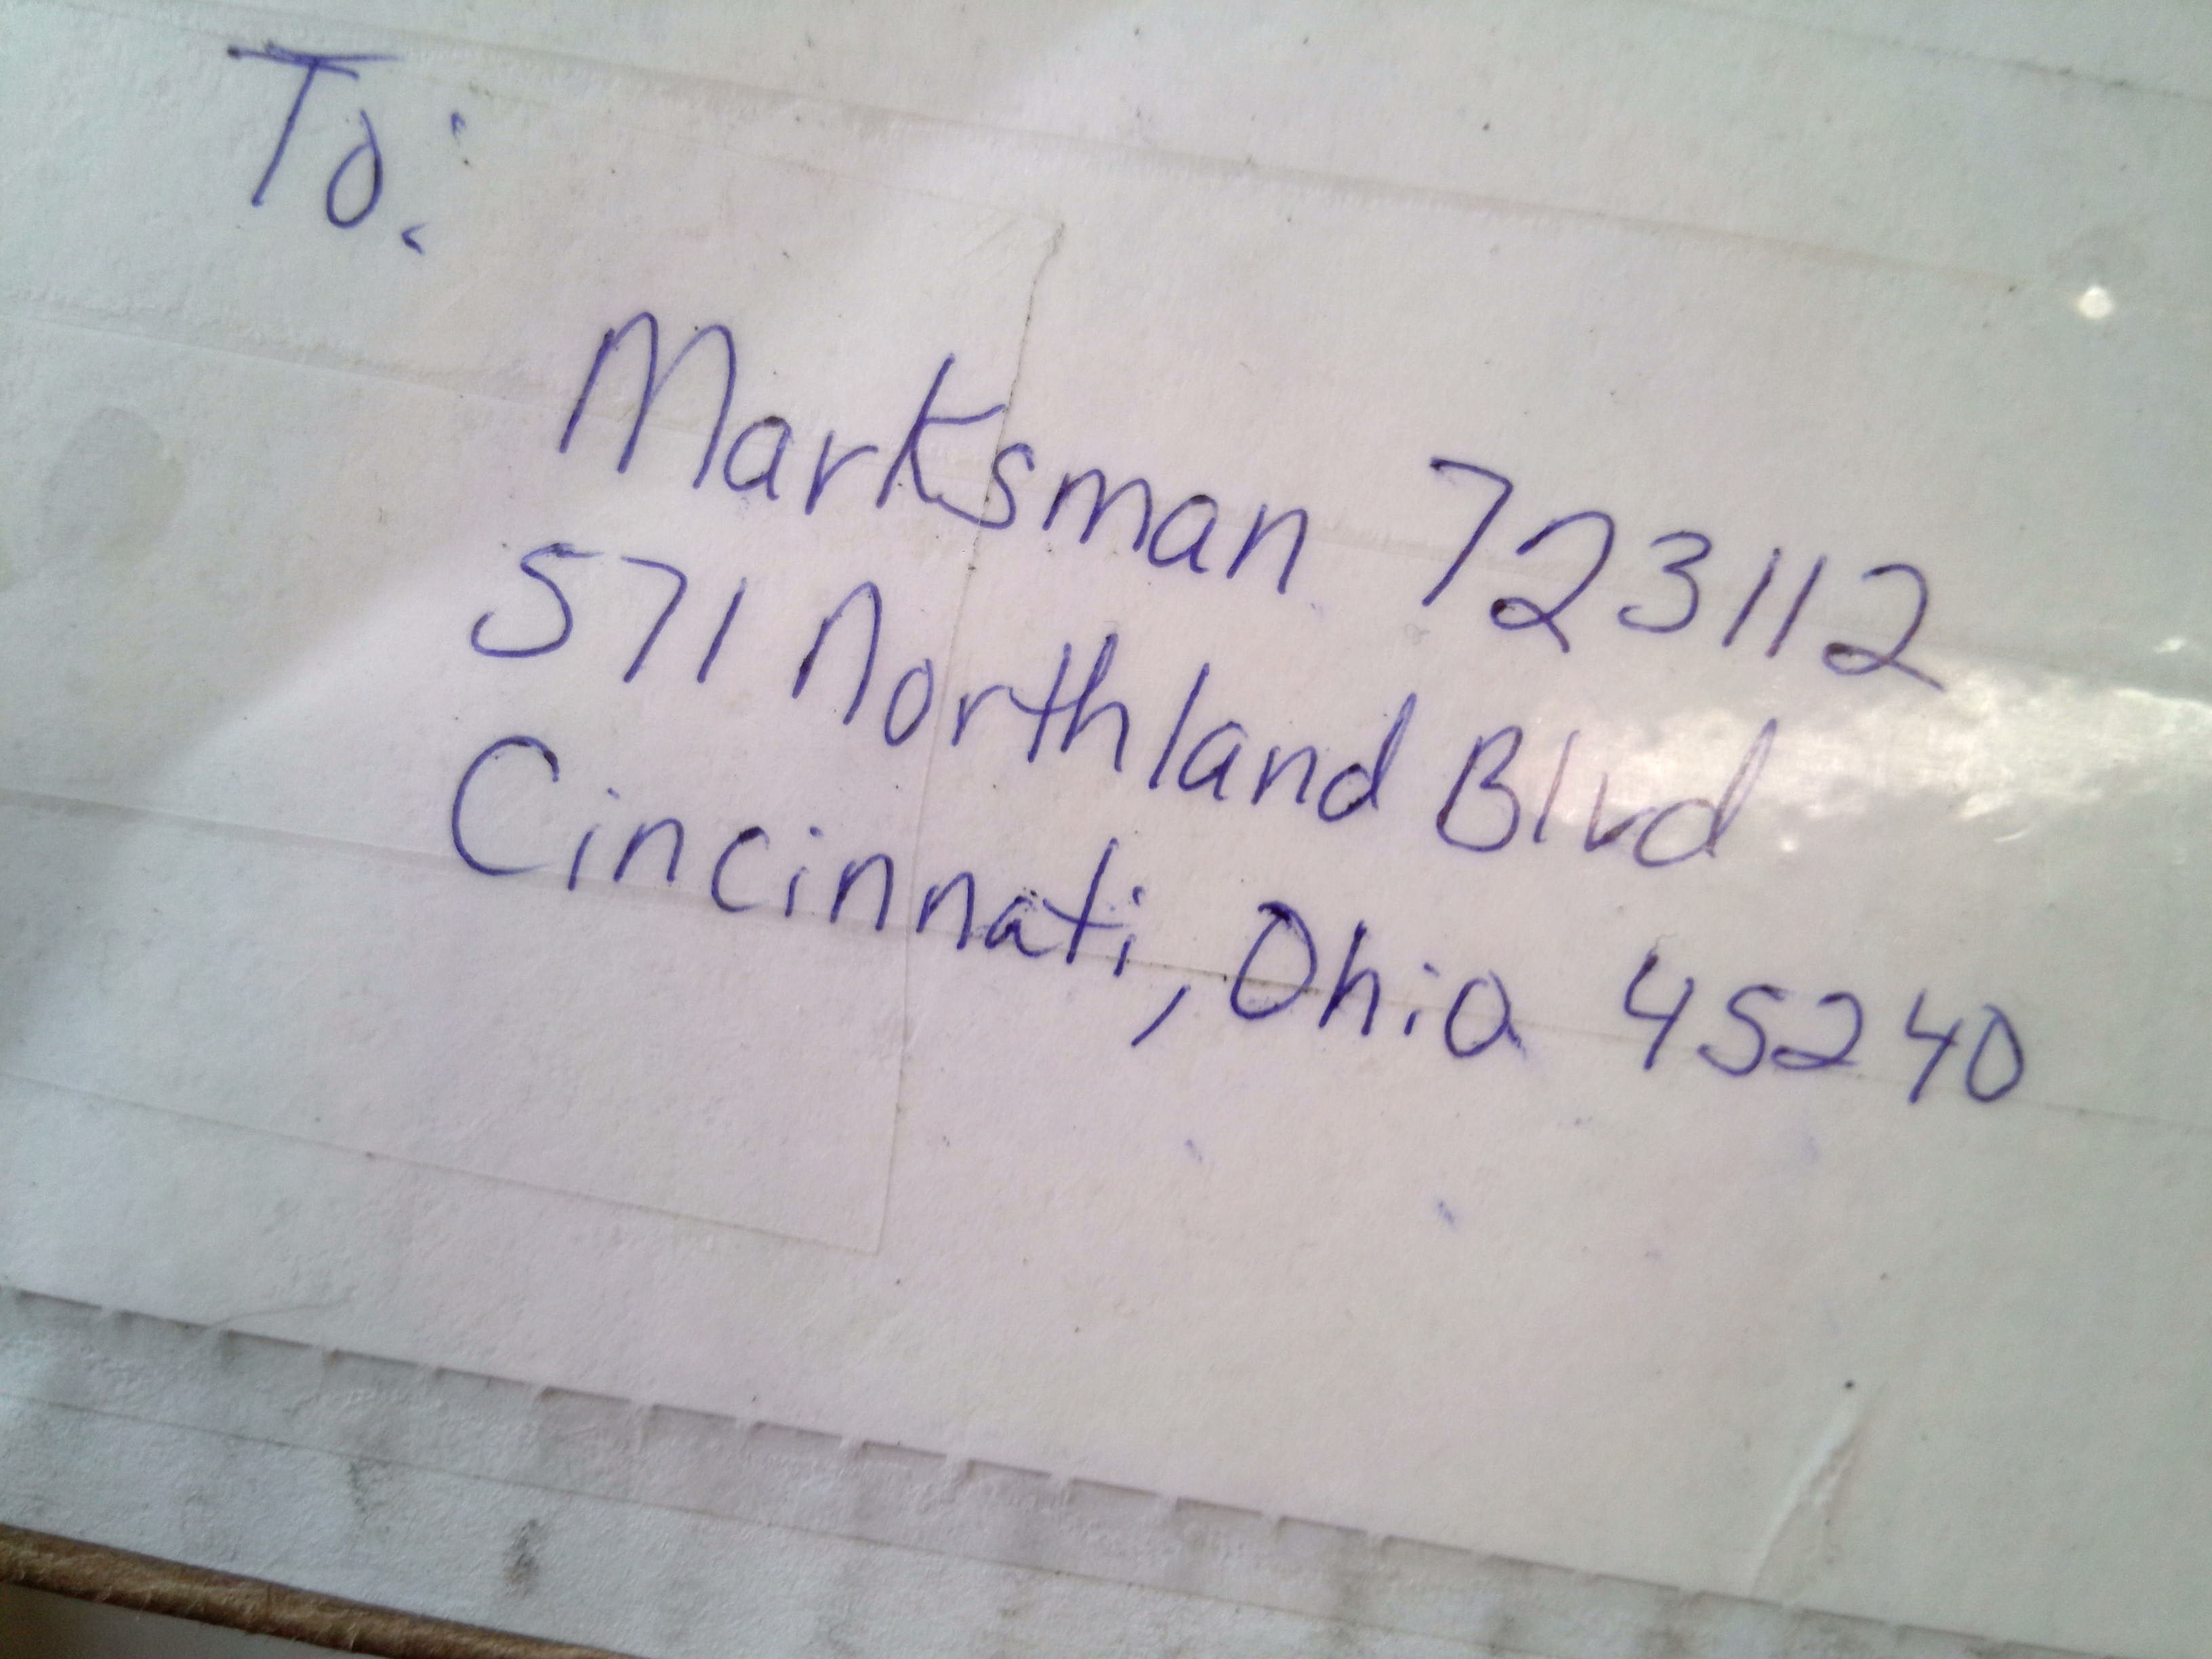 To:
Marksman 723112
571 Northland Blvd
Cincinnati, Ohio 45240